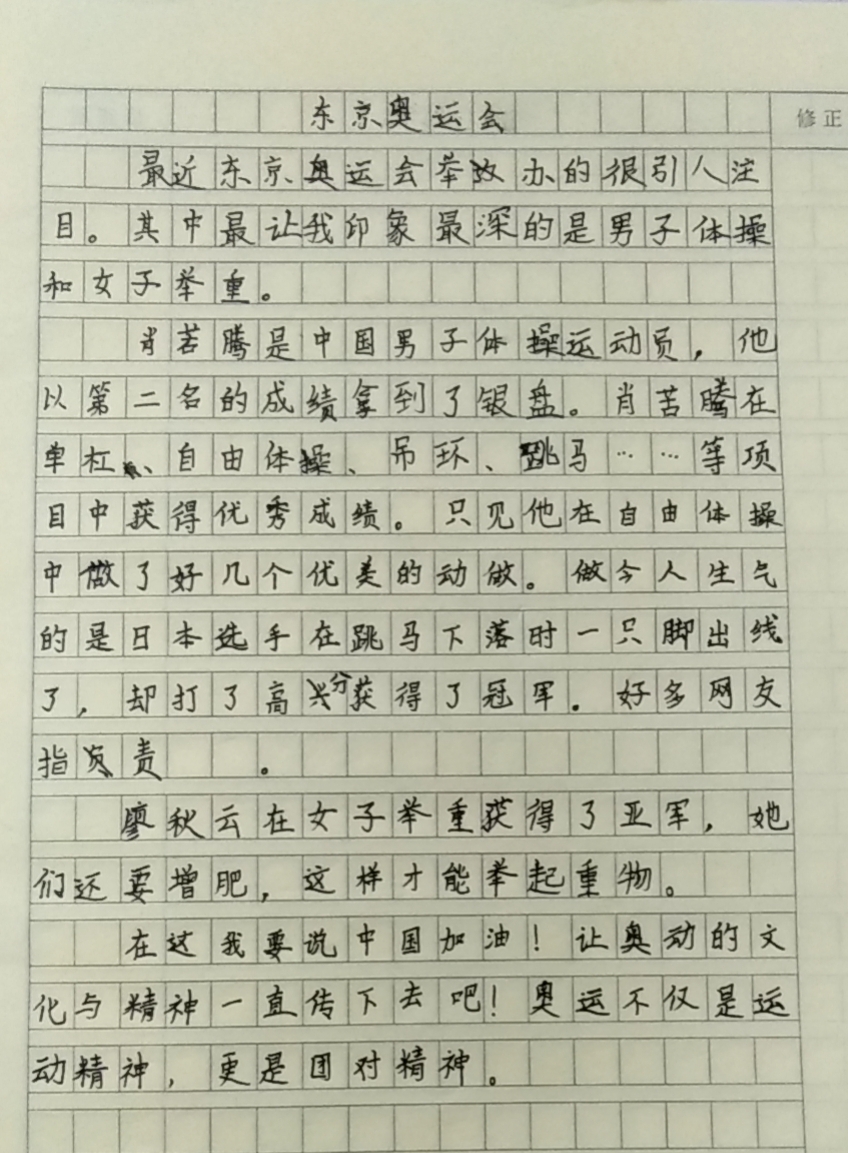 东京奥运会
修正
最近东京奥运会举办的很引人注
目。其中最让我印象最深的是男子体操
和女子举重。
肖若腾是中国男子体操运动员，他
以第二名的成绩拿到了银盘。肖苦腾在
单杠、自由体操、吊环、跳马……等项
目中获得优秀成绩。只见他在自由体操
中做了好几个优美的动做。做令人生气
的是日本选手在跳马下落时一只脚出线
了，却打了高分获得了冠军。好多网友
指责。
廖秋云在女子举重获得了亚军，她
们还要增肥，这样才能举起重物。
在这我要说中国加油！让奥动的文
化与精神一直传下去吧！奥运不仅是运
动精神，更是团对精神。